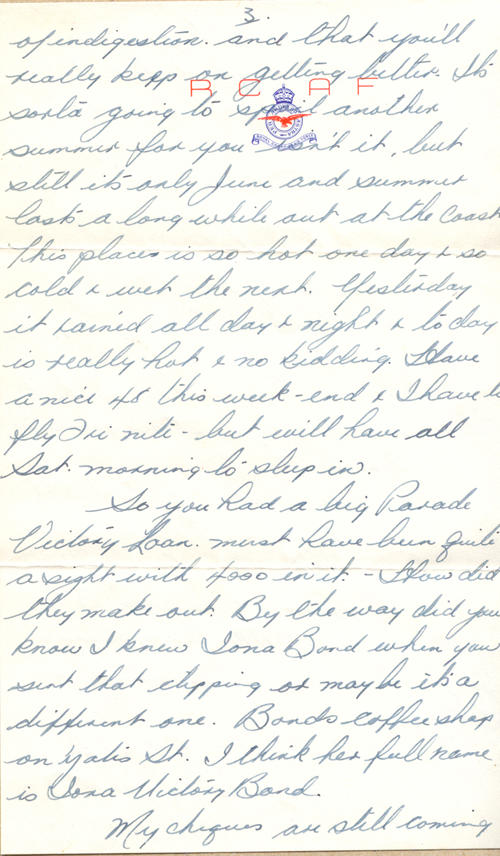 3.
of indigestion. and that you'll
really keep on getting better. It's
R C A F
sorta going to spoil another
summer for you isn't it, but
still it's only June and summer
lasts a long while out at the Coast
This places is so hot one day & so
cold & wet the next. Yesterday
it rained all day & night & today
is really hot & no kidding. Have
a nice 48 this week-end & I have to
fly Fri nite - but will have all
Sat. morning to sleep in.
So you had a big Parade
Victory Loan. must have been quite
a sight with 4000 in it. - How did
they make out. By the way did you
know I knew Iona Bond when you
sent that clipping or maybe it's a
different one. Bonds coffee shop
on Yates St. I think her full name
is Iona Victory Bond.
My cheques are still coming